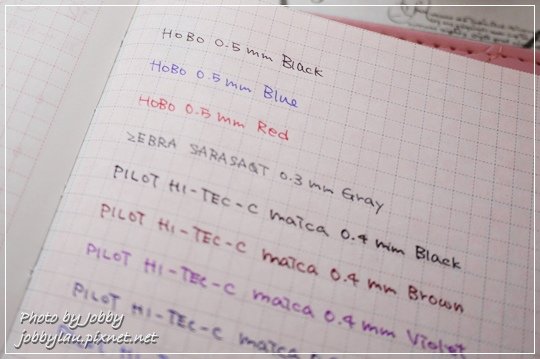 HoBo 0.5 mm Black
HoBo 0.5 mm Blue
HoBo 0.5 mm Red
ZEBRA SARASAQT 0.3 mm Gray
PILOT HI-TEC-C maica 0.4 mm Black
PILOT HI-TEC-C maica 0.4 mm Brown
PILOT HI-TEC-C maica 0.4 mm Violet
PILOT HI-TEC-C maica 0.
PILOT HI-
Photo by Jobby
jobbylau.pixnet.net